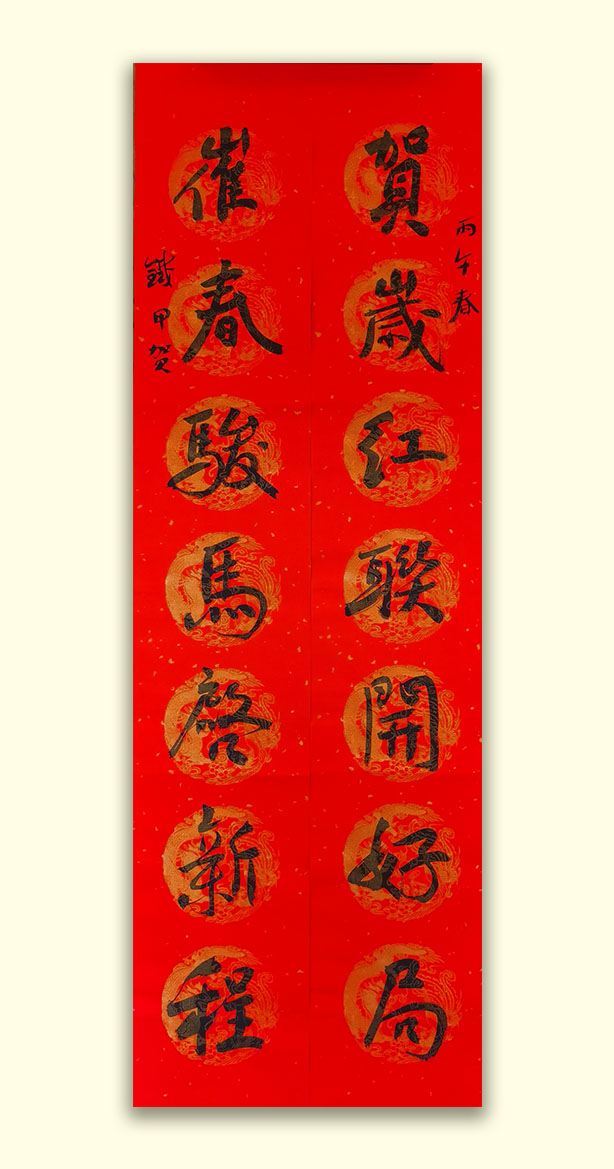 賀歲紅聯開好局
丙午春
崔春駿馬啓新程
鐵甲贺